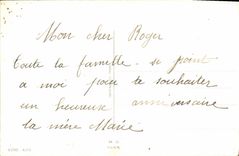 Mon cher Roger
Toute la famille se point
a moi pour te souhaiter
un heureux anniversaire
ta mère Marie